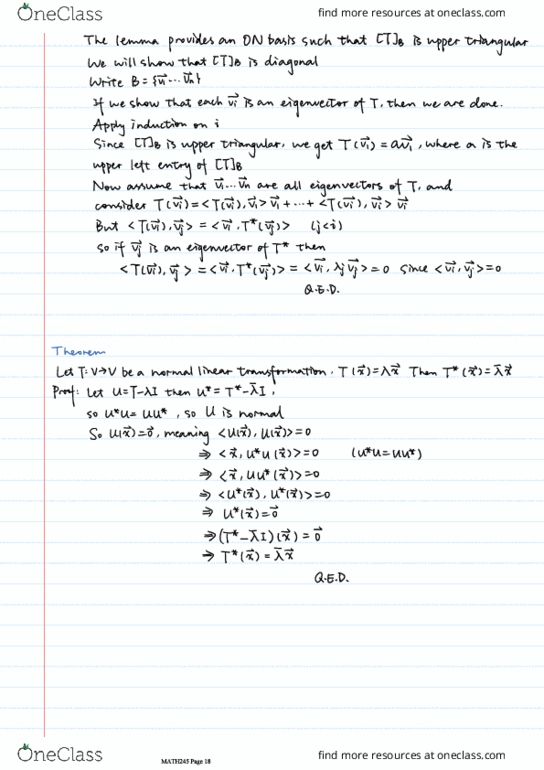 OneClass find more resources at oneclass.com
The lemma provides an ON basis such that [T]B is upper triangular
We will show that [T]B is diagonal
Write B = {v⃗1 ... v⃗n}
If we show that each v⃗i is an eigenvector of T, then we are done.
Apply induction on i
Since [T]B is upper triangular, we get T(v⃗1) = av⃗1, where a is the
upper left entry of [T]B
Now assume that v⃗1 ... v⃗n are all eigenvectors of T, and
consider T(v⃗i) = <T(v⃗i), v⃗1> v⃗1 + ... + <T(v⃗i), v⃗i> v⃗i
But <T(v⃗i), v⃗j> = <v⃗i, T*(v⃗j)> (j<i)
So if v⃗j is an eigenvector of T* then
<T(v⃗i), v⃗j> = <v⃗i, T*(v⃗j)> = <v⃗i, λj v⃗j> = 0 since <v⃗i, v⃗j> = 0
Q.E.D.
Theorem
Let T: V→V be a normal linear transformation, T(x⃗) = λx⃗ Then T*(x⃗) = λ̄x⃗
Proof: Let U = T-λI then U* = T* - λ̄I,
so U*U = UU*, so U is normal
So U(x⃗) = 0⃗, meaning <U(x⃗), U(x⃗)> = 0
⇒ <x⃗, U*U(x⃗)> = 0 (U*U = UU*)
⇒ <x⃗, UU*(x⃗)> = 0
⇒ <U*(x⃗), U*(x⃗)> = 0
⇒ U*(x⃗) = 0⃗
⇒ (T* - λ̄I)(x⃗) = 0⃗
⇒ T*(x⃗) = λ̄x⃗
Q.E.D.
OneClass MATH245 Page 18 find more resources at oneclass.com